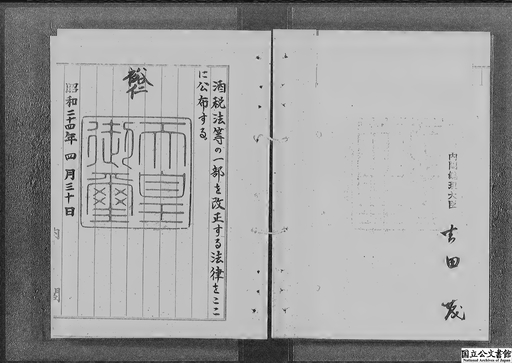 酒税法等の一部を改正する法律をここ
に公布する。
裕仁
天皇
御璽
昭和二十四年四月三十日
内閣
内閣総理大臣
吉田茂
国立公文書館
National Archives of Japan